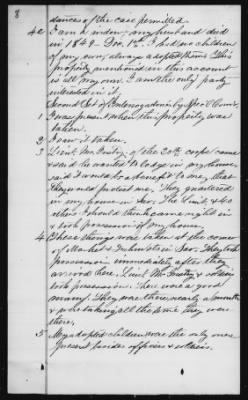 8
dances of the case permitted.
42 I am a widow, my husband died
in 1849 - Dec. 1st. I had no children
of my own, always adopted them. This
property mentioned in this account
is all my own. I am the only party
interested in it.
Second Set of Interrogatories by Spec'l Comr.
1 I was present when this property was
taken.
2 I saw it taken.
3 Lieut. Mr. of the 20th corps came
& said he wanted to lodge in my house,
said it would be a benefit to me, that
they would protect me. They quartered
in my house in Sav. The Lieut. & 40
others I should think came right in
& took possession of my house.
4 These things was taken at the corner
of Market & in Sav. They took
possession immediately after they
arrived here. Lieut. Mr. & others
took possession. There was a good
many. They was there nearly a month
& was taking all the time they was
there.
5 My adopted children was the only ones
present besides officers & soldiers.